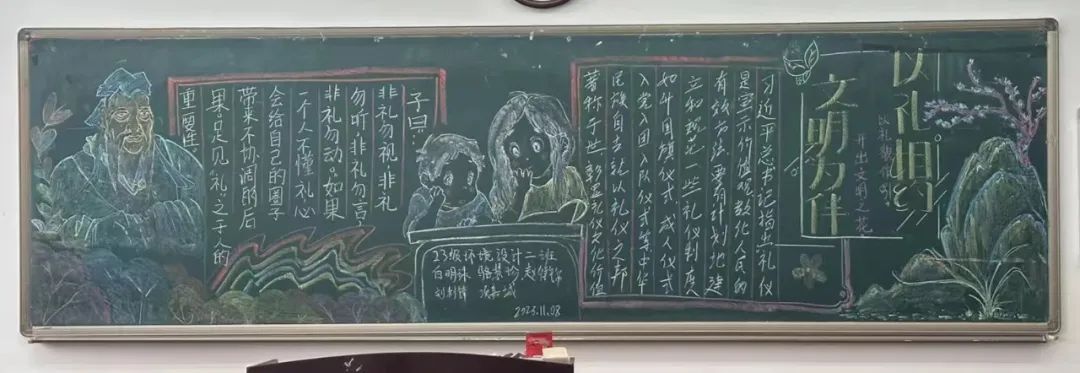 以礼相约
文明为伴
以礼貌待
开出文明之花
习近平总书记指出礼仪
是宣示价值观教化人民的
有效方法要有计划地建
立和规范一些礼仪制度
如升国旗仪式成人仪式
入党入团入队仪式等中华
民族自古就以礼仪之邦
著称于世彰显礼仪文化价值
子曰:
非礼勿视,非礼
勿听,非礼勿言
非礼勿动。如果
一个人不懂礼心
会给自己的圈子
带来不协调的后
果,足见“礼”之于人的
重要性
23级环境设计二班
白明沫
2023.11.08